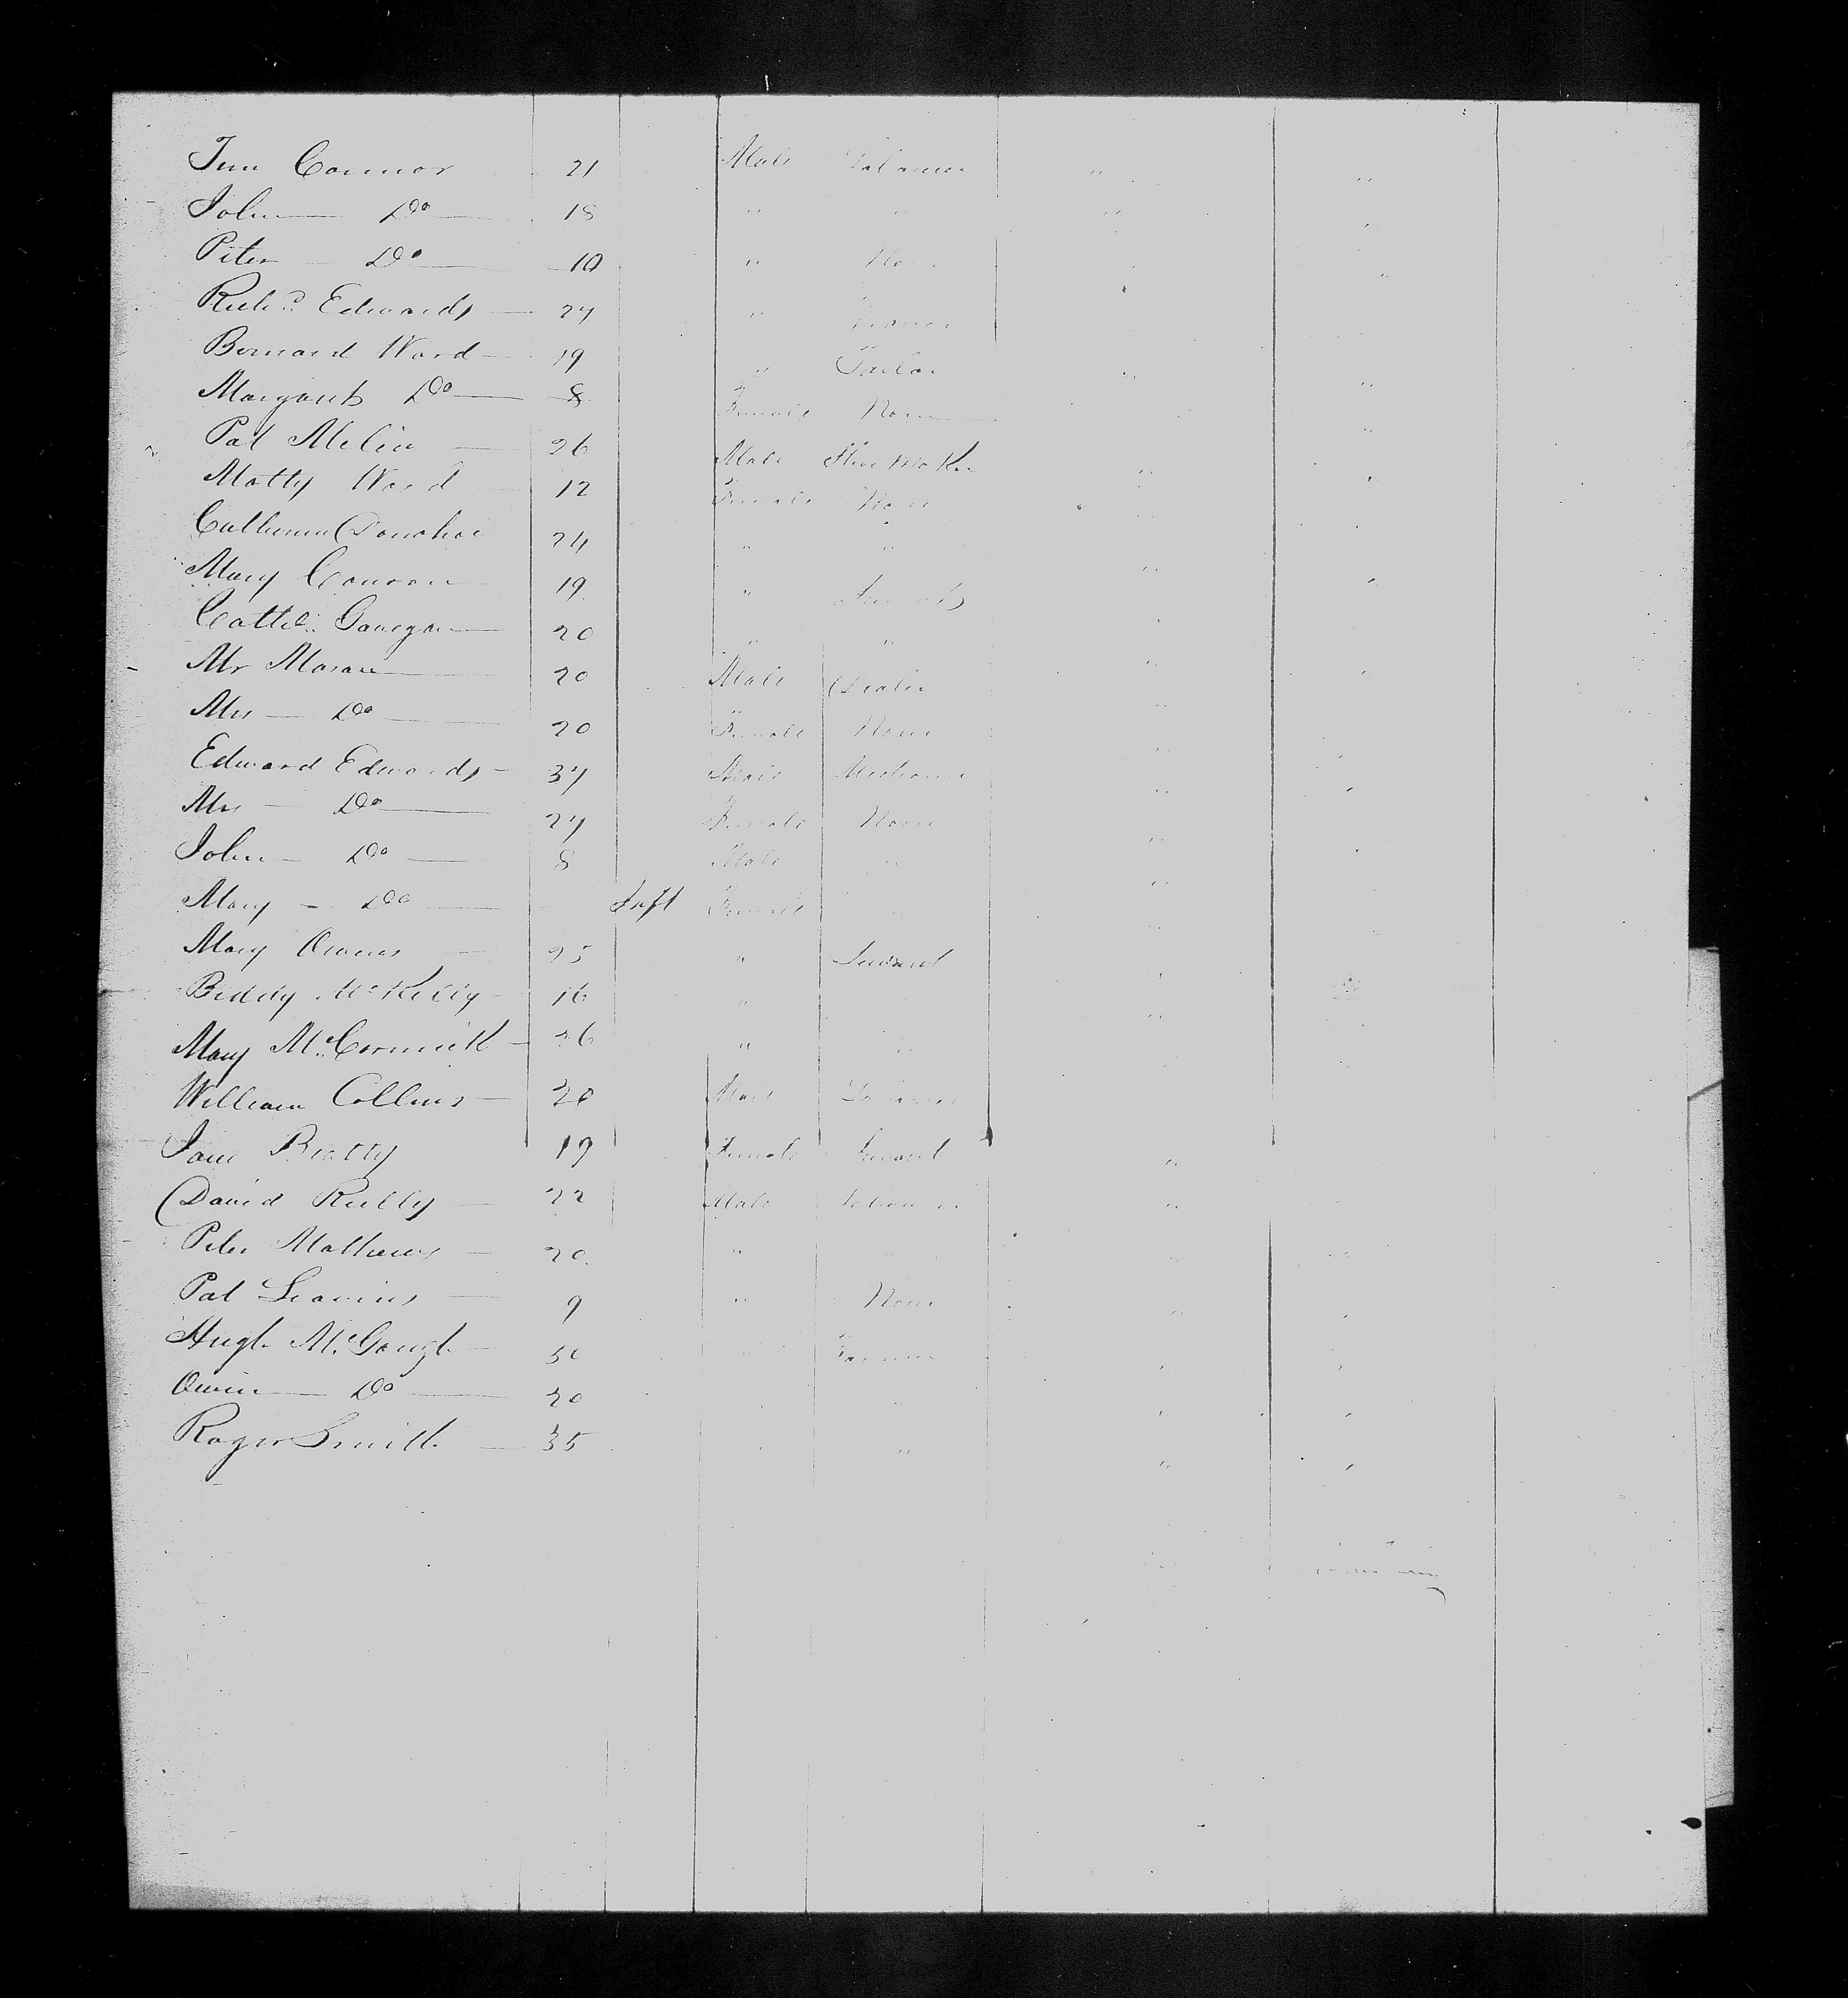 Connor 21 Male Labourer " "
John Do 18 " " " "
Peter Do 10 " None "
Richd Edwards 24 "
Bernard Ward 19 " Tailor " "
Margaret Do 8 Female None "
Pat Melia 26 Male Shoe Maker " "
Matty Ward 12 Female None "
Catherine Donohoe 24 " " "
Mary 19 " Servants "
20 " "
Mr Moran 20 Male Dealer "
Mrs Do 20 Female None "
Edward Edwards 37 Male Mechanic "
Mrs Do 27 Female None "
John Do 8 Male " "
Mary Do Inft Female " "
Mary Owens 25 " Servant "
Biddy 16 " "
Mary McCormick 26 " "
William Collins 20 Male Labourer
Jane Beatty 19 Female Servant "
David Reilly 22 Male Labourer "
Peter Mathews 20 " "
Pat 9 " None "
Hugh McGough Farmer "
Owen Do 20 " "
Roger Smith 35 " "